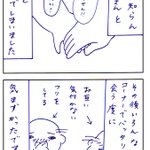 知らん
えんと
と
でしまいました
その後いろんな
コーナーでバッタリ
会う度に
お互い
気付かない
フリを
する
気まずかったです